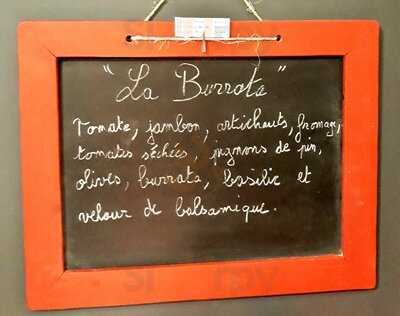 "La Burrata"
Tomate, jambon, artichauts, fromage,
tomates séchées, pignons de pin,
olives, burrata, basilic et
velour de balsamique.